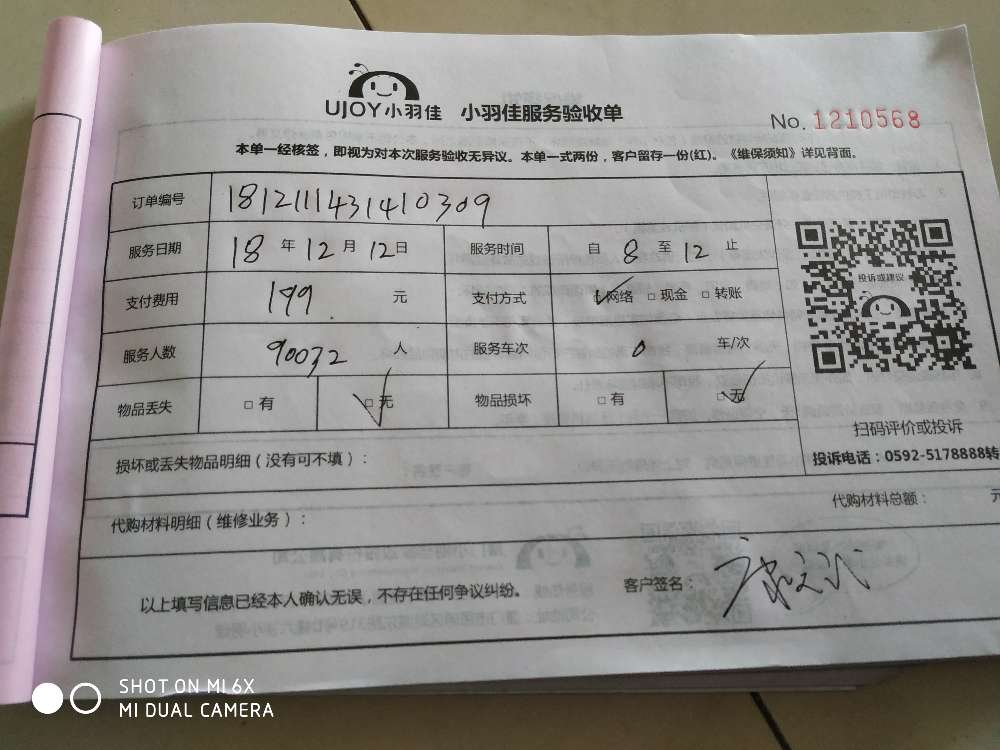 UJOY小羽佳 小羽佳服务验收单
No. 1210568
本单一经核签，即视为对本次服务验收无异议。本单一式两份，客户留存一份(红)。《维保须知》详见背面。
订单编号 1812111431410309
服务日期 18年12月12日 服务时间 自8至12止
支付费用 199 元 支付方式 ☑网络 □现金 □转账
服务人数 90032 人 服务车次 0 车/次
物品丢失 □有 ☑无 物品损坏 □有 ☑无
投诉或建议
扫码评价或投诉
投诉电话：0592-5178888转
损坏或丢失物品明细（没有可不填）：
代购材料明细（维修业务）： 代购材料总额： 元
以上填写信息已经本人确认无误，不存在任何争议纠纷。 客户签名：
SHOT ON MI 6X
MI DUAL CAMERA